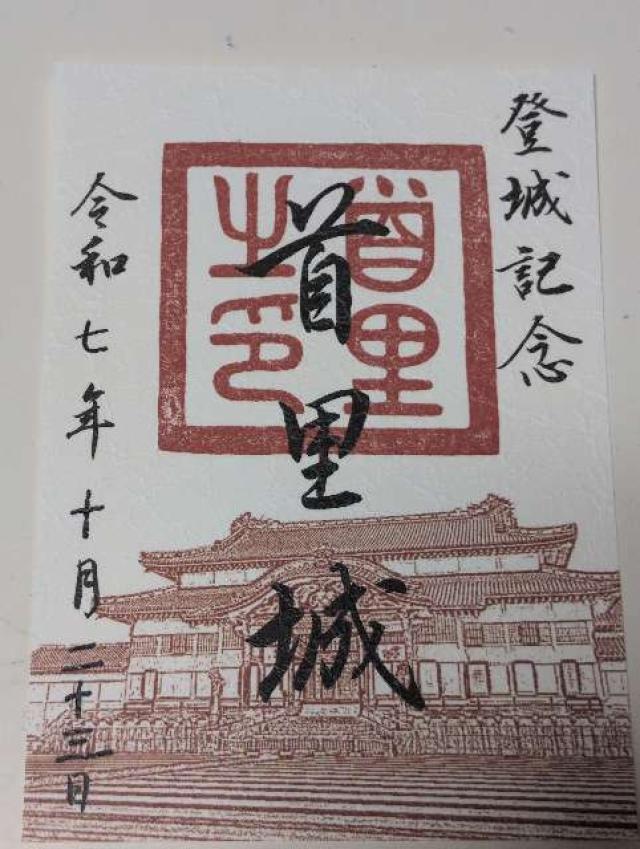 登城記念
首里之印
首里城
令和七年十月二十三日